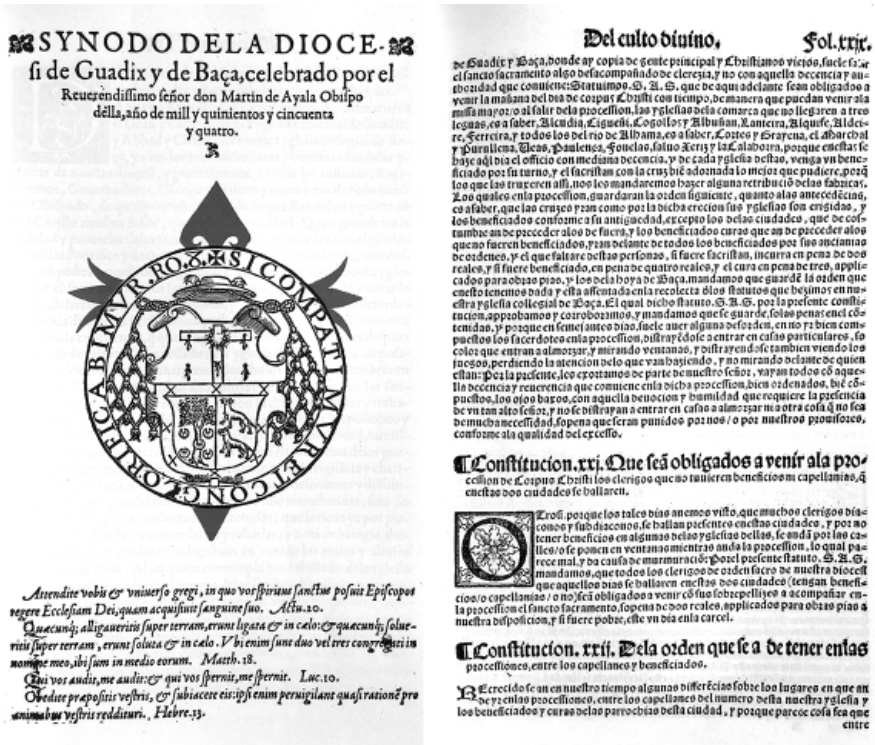 SYNODO DELA DIOCE-
si de Guadix y de Baça, celebrado por el
Reuerendissimo señor don Martin de Ayala Obispo
della, año de mill y quinientos y cincuenta
y quatro.
SI COMPATIMVR, ET CONGLORIFICABIMVR. RO. 8.
Attendite vobis & vniuerso gregi, in quo vos spiritus sanctus posuit Episcopos
regere Ecclesiam Dei, quam acquisiuit sanguine suo. Actu. 20.
Quæcunq; alligaueritis super terram, erunt ligata & in cælo: & quæcunq; solue-
ritis super terram, erunt soluta & in cælo. Vbi enim sunt duo vel tres congregati in
nomine meo, ibi sum in medio eorum. Matth. 18.
Qui vos audit, me audit: & qui vos spernit, me spernit. Luc. 10.
Obedite præpositis vestris, & subiacete eis: ipsi enim peruigilant quasi rationē pro
animabus vestris reddituri. Hebre. 13.
Del culto diuino. Fol. xxix.
de Guadix y Baça, donde ay copia de gente principal y Christianos viejos, suele salir
el sancto sacramento algo desacompañado de clerezia, y no con aquella decencia y au-
thoridad que conuiene: Statuimos. S. A. S. que de aqui adelante sean obligados a
venir la mañana del dia de corpus Christi con tiempo, de manera que puedan venir ala
missa mayor, o al salir dela procession, las yglesias dela comarca que no llegaren a tres
leguas, es a saber, Alcudia, Cigueñi, Cogollos y Albuñan, Lanteira, Alquife, Aldei-
re, Ferreira, y todos los del rio de Alhama, es a saber, Cortes y Grayena, el Marchal
y Purullena, Beas, Paulença, Fonelas, saluo Xeriz y la Calahorra, porque en estas se
haze aql dia el officio con mediana decencia, y de cada yglesia destas, venga vn bene-
ficiado por su turno, y el sacristan con la cruz biē adornada lo mejor que pudiere, porq̄
los que las truxeren assi, nos les mandaremos hazer alguna retribuciō delas fabricas.
Los quales en la procession, guardaran la orden siguiente, quanto alas antecedēcias,
es a saber, que las cruzes yran como por la dicha erecion sus yglesias son erigidas, y
los beneficiados conforme a su antiguedad, excepto los delas ciudades, que de cos-
tumbre an de preceder alos de fuera, y los beneficiados curas que an de preceder alos
que no fueren beneficiados, yran delante de todos los beneficiados por sus ancianias
de ordenes, y el que faltare destas personas, si fuere sacristan, incurra en pena de dos
reales, y si fuere beneficiado, en pena de quatro reales, y el cura en pena de tres, appli-
cados para obras pias, y los dela hoya de Baça, mandamos que guardē la orden que
en esto tenemos dada y esta assentada en la recolecta dlos statutos que hezimos en nu-
estra yglesia collegial de Baça. El qual dicho statuto. S. A. S. por la presente consti-
tucion, approbamos y corroboramos, y mandamos que se guarde, so las penas en el cō-
tenidas, y porque en semejantes dias, suele auer alguna desorden, en no yr bien com-
puestos los sacerdotes en la procession, distrayēdose a entrar en casas particulares, so
color que entran a almorzar, y mirando ventanas, y distrayendose tambien viendo los
juegos, perdiendo la atencion de lo que van haziendo, y no mirando delante de quien
estan: Por la presente, los exortamos de parte de nuestro señor, vayan todos cō aque-
lla decencia y reuerencia que conuiene en la dicha procession, bien ordenados, biē cō-
puestos, los ojos baxos, con aquella deuocion y humildad que requiere la presencia
de vn tan alto señor, y no se distrayan a entrar en casas a almorzar ni a otra cosa q̄ no sea
de mucha necessidad, so pena que seran punidos por nos / o por nuestros prouisores,
conforme a la qualidad del excesso.
¶Constitucion. xxj. Que seā obligados a venir ala pro-
cession de Corpus Christi los clerigos que no tuuieren beneficios ni capellanias, q̄
en estas dos ciudades se hallaren.
OTrosi porque los tales dias auemos visto, que muchos clerigos dia-
conos y subdiaconos, se hallan presentes en estas ciudades, y por no
tener beneficios en algunas delas yglesias dellas, se andā por las ca-
lles / o se ponen en ventanas mientras anda la procession, lo qual pa-
rece mal, y da causa de murmuraciō: Por el presente statuto. S. A. S.
mandamos, que todos los clerigos de orden sacro de nuestra diocesi
que aquellos dias se hallaren en estas dos ciudades (tengan benefi-
cios / o capellanias / o no) seā obligados a venir cō sus sobrepellizes a acompañar en
la procession el sancto sacramento, so pena de dos reales, applicados para obras pias a
nuestra disposicion, y si fuere pobre, este vn dia en la carcel.
¶Constitucion. xxii. Dela orden que se a de tener enlas
processiones, entre los capellanes y beneficiados.
PArecido se an en nuestro tiempo algunas differēcias sobre los lugares en que an
de yr en las processiones, entre los capellanes del numero desta nuestra yglesia y
los beneficiados y curas delas parrochias desta ciudad, y porque parece cosa fea que
entre